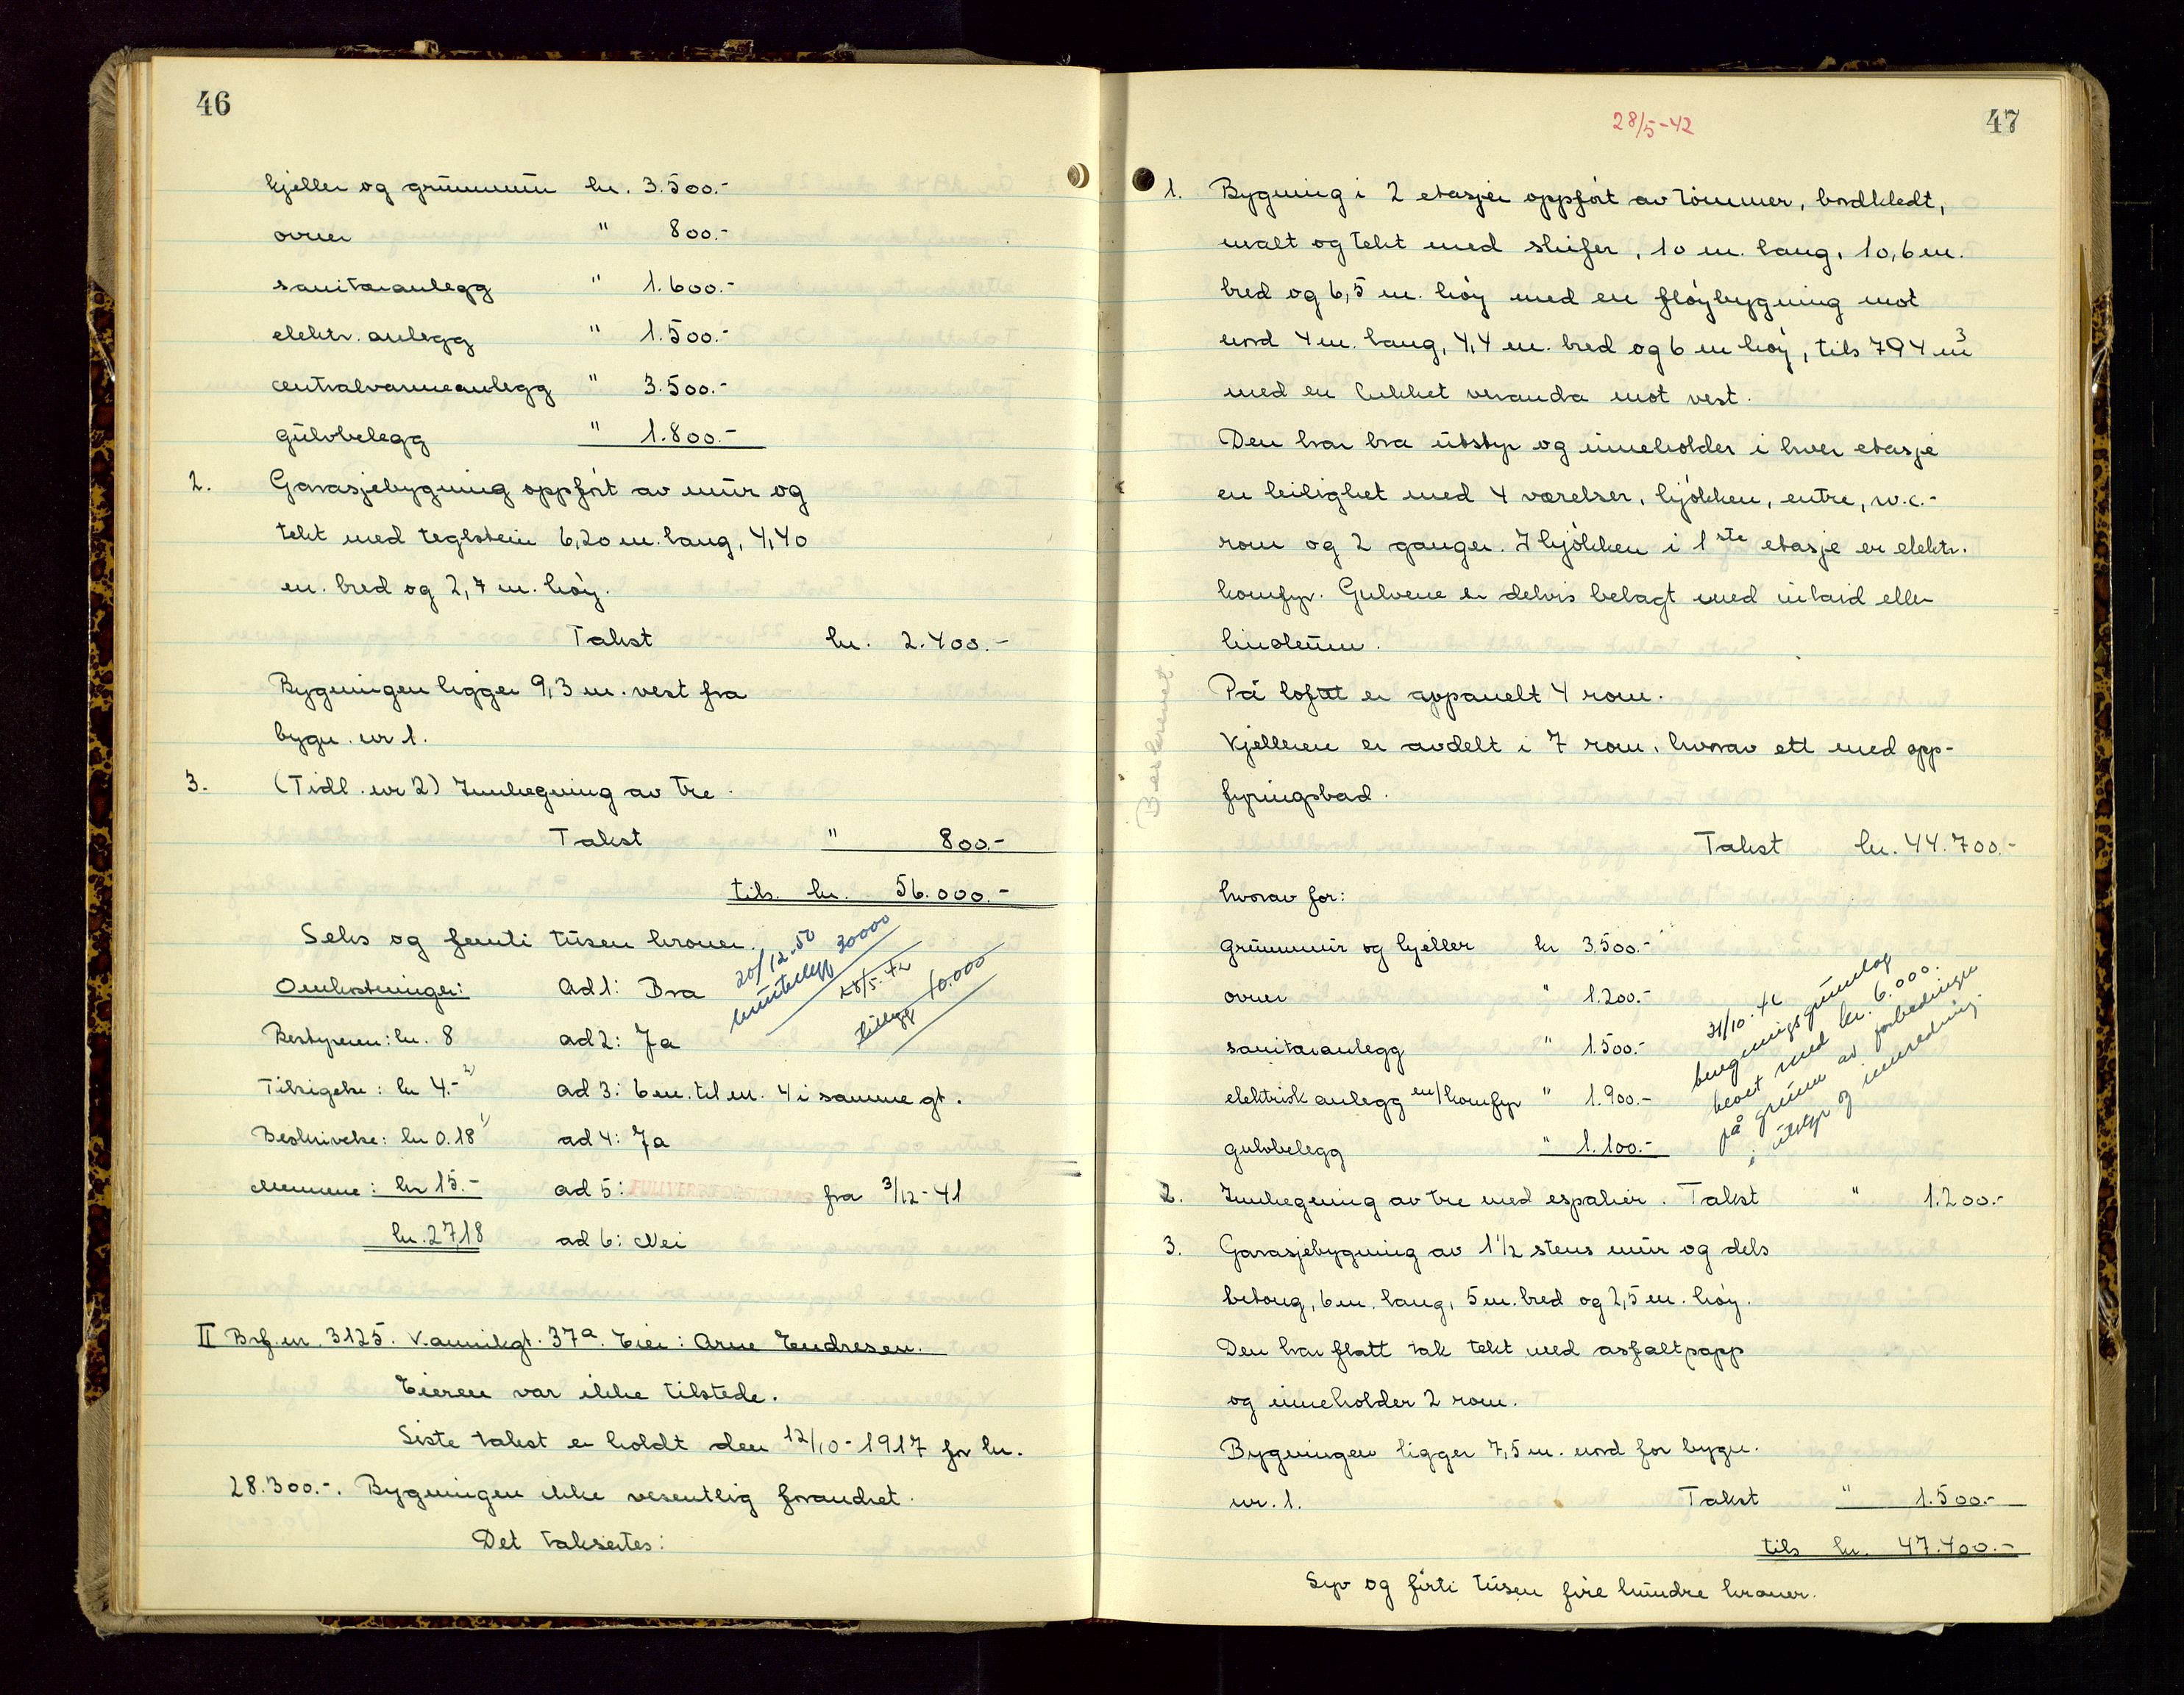 46
kjeller og grunnmur kr. 3.500.-
ovner " 800.-
sanitæranlegg " 1.600.-
elektr. anlegg " 1.500.-
centralvarmeanlegg " 3.500.-
gulvbelegg " 1.800.-
2. Garasjebygning oppført av mur og
tekt med teglstein 6,20 m. lang, 4,40
m. bred og 2,7 m. høy.
Takst kr. 2.400.-
Bygningen ligger 9,3 m. vest fra
bygn. nr 1.
3. (Tidl. nr 2) Innhegning av tre.
Takst " 800.-
tils. kr. 56.000.-
Seks og femti tusen kroner.
20/12-50
30000
28/5.42
tillegg 10.000
Omkostninger: Ad 1: Bra
Bestyreren: kr. 8 ad 2: Ja
Tilsigelse: kr 4.- 2) ad 3: 6 m. til nr. 4 i samme gt.
Beskrivelse: kr 0.18 1) ad 4: Ja
Mennene: kr 15.- ad 5: FULLVERDIFORSIKRING fra 3/12-41
kr. 27,18 ad 6: Nei
II Brf. nr. 3125. Kannikgt. 37a. Eier: Arne Endresen.
Eieren var ikke tilstede.
Siste takst er holdt den 12/10-1917 for kr.
28.300.-. Bygningen ikke vesentlig forandret.
Det takseres:
47
28/5-42
1. Bygning i 2 etasjer oppført av tømmer, bordkledt,
malt og tekt med skifer, 10 m. lang, 10,6 m.
bred og 6,5 m. høy med en fløybygning mot
nord 4 m. lang, 4,4 m. bred og 6 m høy, tils 794 m3
med en lukket veranda mot vest.
Den har bra utstyr og inneholder i hver etasje
en leilighet med 4 værelser, kjøkken, entre, w.c.-
rom og 2 ganger. I kjøkken i 1ste etasje er elektr.
komfyr. Gulvene er delvis belagt med inlaid eller
linoleum.
På loftet er oppanelt 4 rom.
Kjelleren er avdelt i 7 rom, hvorav ett med opp-
fyringsbad.
Beskrevet.
Takst kr. 44.700.-
hvorav for:
grunnmur og kjeller kr 3.500.-
ovner " 1.200.-
sanitæranlegg " 1.500.-
elektrisk anlegg m/komfyr " 1.900.-
gulvbelegg " 1.100.-
31/10.42
bygningsgrunnlag
hevet med kr. 6.000.
på grunn av forbedringer
i utstyr og innredning.
2. Innhegning av tre med espalier. Takst " 1.200.-
3. Garasjebygning av 1 1/2 stens mur og dels
betong, 6 m. lang, 5 m. bred og 2,5 m. høy.
Den har flatt tak tekt med asfaltpapp
og inneholder 2 rom.
Bygningen ligger 7,5 m. nord for bygn.
nr. 1. Takst " 1.500.-
tils kr. 47.400.-
Syv og førti tusen fire hundre kroner.